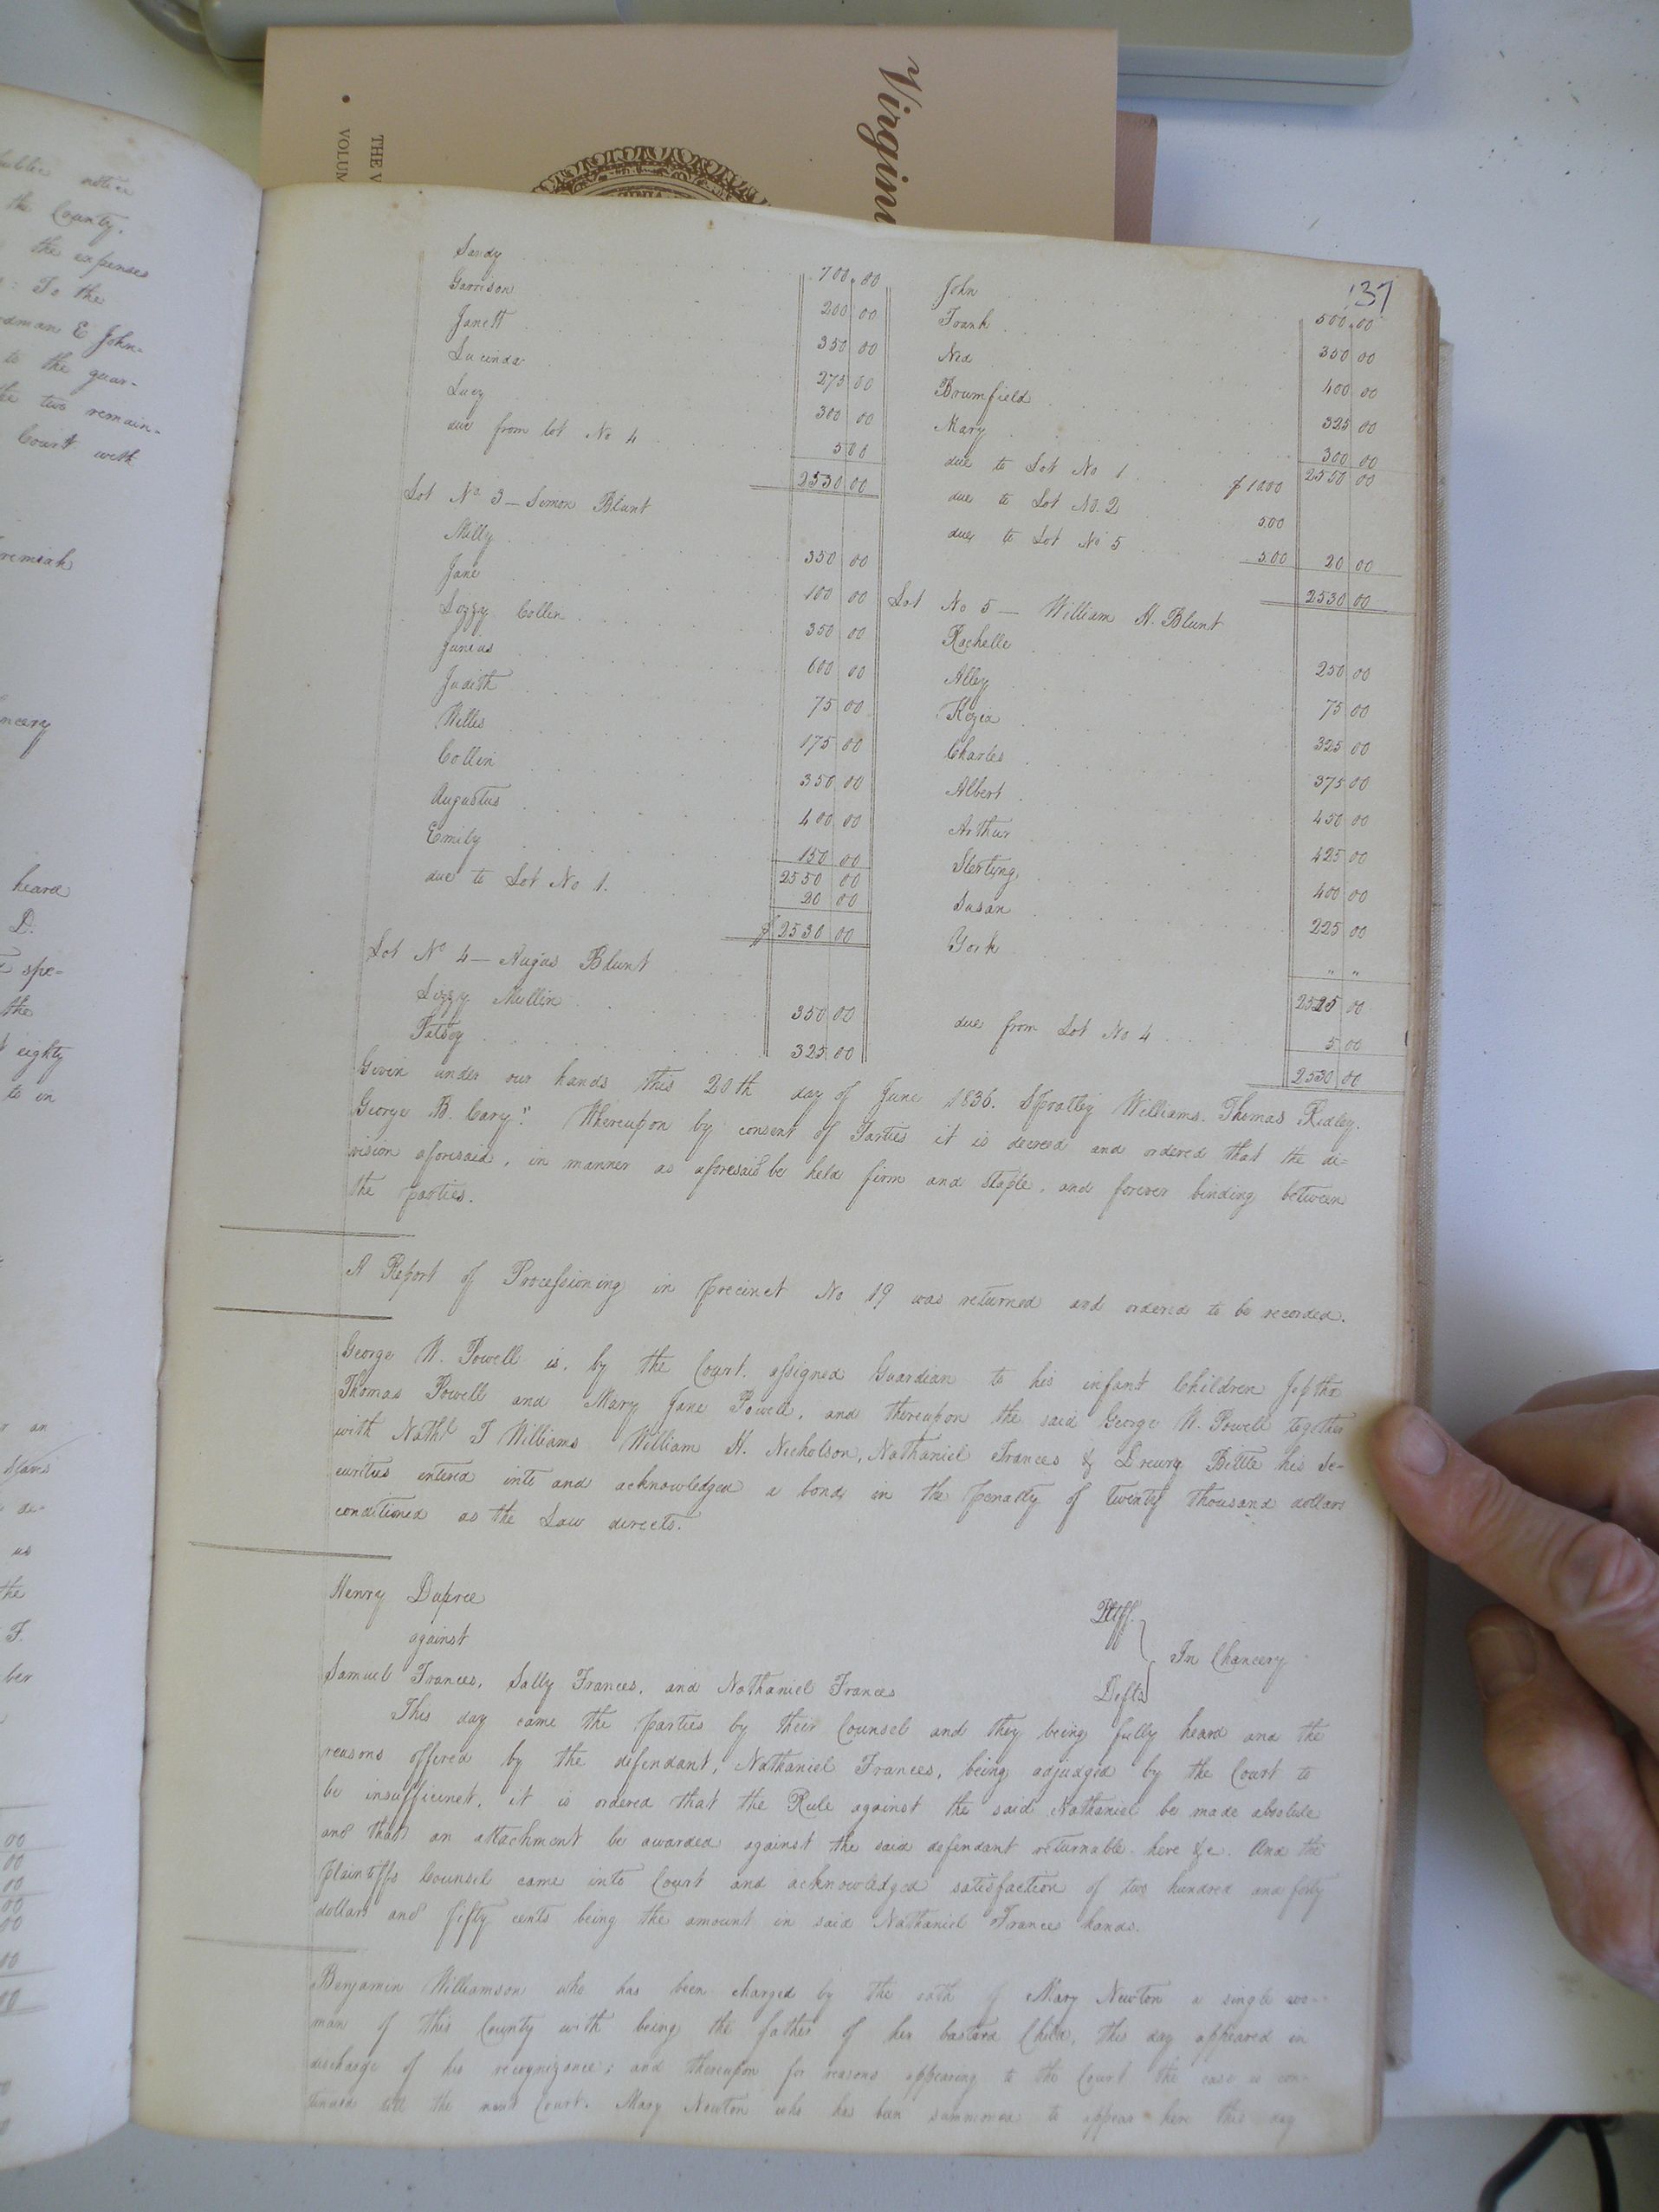 Virgin
THE V
VOLUM
137
Sandy 700.00
Garrison 200 00
Janett 350 00
Lucinda 275 00
Lucy 300 00
due from lot No 4 5 00
2530 00
Lot No 3 — Simon Blunt
Milly 350 00
Jane 100 00
Lizzy Collin 350 00
Junius 600 00
Judith 75 00
Willis 175 00
Collin 350 00
Augustus 400 00
Emily 150 00
2550 00
due to Lot No 1. 20 00
$ 2530 00
Lot No 4 — Angus Blunt
Lizzy Mullin 350 00
Patsey 325 00
John 500.00
Frank 350 00
Ned 400 00
Brumfield 325 00
Mary 300 00
2550 00
due to Lot No 1 $ 10 00
due to Lot No. 2 5.00
due to Lot No 5 5.00 20 00
2530 00
Lot No 5 — William H. Blunt
Rochelle 250 00
Alley 75 00
Kezia 325 00
Charles 375 00
Albert 450 00
Arthur 425 00
Sterling 400 00
Susan 225 00
York " "
2525 00
due from Lot No 4 5 00
2530 00
Given under our hands this 20th day of June 1836. Spratley Williams. Thomas Ridley.
George B. Cary." Whereupon by consent of Parties it is decreed and ordered that the di=
vision aforesaid, in manner as aforesaid be held firm and staple, and forever binding between
the parties.
A Report of Processioning in precinct No 19 was returned and ordered to be recorded.
George W. Powell is, by the Court, assigned Guardian to his infant Children Jeptha
Thomas Powell and Mary Jane Powell, and thereupon the said George W. Powell together
with Nathl T Williams William H. Nicholson, Nathaniel Frances & Drewry Bittle his Se-
curities entered into and acknowledged a bond in the penalty of twenty thousand dollars
conditioned as the Law directs.
Henry Dupree Pltff.
against In Chancery
Samuel Frances, Sally Frances, and Nathaniel Frances Defts
This day came the parties by their Counsel and they being fully heard and the
reasons offered by the defendant, Nathaniel Frances, being adjudged by the Court to
be insufficinet, it is ordered that the Rule against the said Nathaniel be made absolute
and that an attachment be awarded against the said defendant returnable here &c. And the
plaintiffs Counsel came into Court and acknowledged satisfaction of two hundred and forty
dollars and fifty cents being the amount in said Nathaniel Frances hands.
Benjamin Williamson who has been charged by the oath of Mary Newton a single wo-
man of this County with being the father of her bastard Child, this day appeared in
discharge of his recognizance; and thereupon for reasons appearing to the Court the case is con-
tinued till the next Court. Mary Newton who has been summoned to appear here this day
public notice
the County.
the expenses
: To the
dman E John-
to the guar-
the two remain-
Court with
remiah
ncery
heard
D.
spe-
the
eighty
to in
an
slaves
de-
us
the
F.
ber
00
00
00
00
00
00